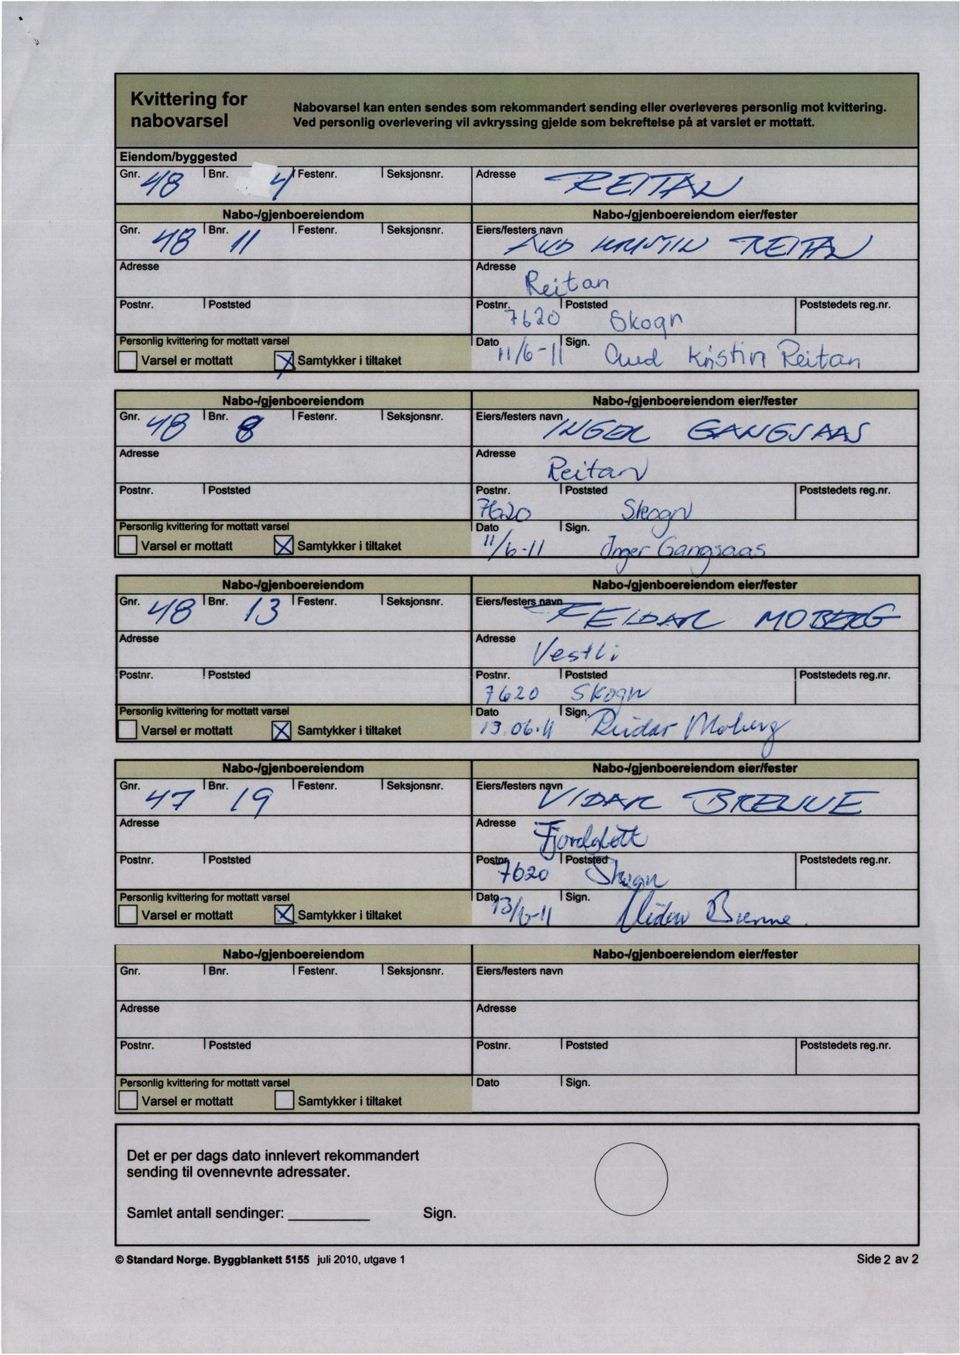 Kvittering for
nabovarsel
Nabovarsel kan enten sendes som rekommandert sending eller overleveres personlig mot kvittering.
Ved personlig overlevering vil avkryssing gjelde som bekreftelse på at varslet er mottatt.
Eiendom/byggested
Gnr. 48 Bnr. 4 Festenr. Seksjonsnr. Adresse REITAN
Nabo-/gjenboereiendom Nabo-/gjenboereiendom eier/fester
Gnr. 48 Bnr. 11 Festenr. Seksjonsnr. Eiers/festers navn AUD KRISTIN REITAN
Adresse Adresse Reitan
Postnr. Poststed Postnr. 7620 Poststed Skogn Poststedets reg.nr.
Personlig kvittering for mottatt varsel Dato 11/6-11 Sign. Aud Kristin Reitan
Varsel er mottatt Samtykker i tiltaket
Nabo-/gjenboereiendom Nabo-/gjenboereiendom eier/fester
Gnr. 48 Bnr. 8 Festenr. Seksjonsnr. Eiers/festers navn INGER GANGSAAS
Adresse Adresse Reitan
Postnr. Poststed Postnr. 7620 Poststed Skogn Poststedets reg.nr.
Personlig kvittering for mottatt varsel Dato 11/6-11 Sign. Inger Gangsaas
Varsel er mottatt Samtykker i tiltaket
Nabo-/gjenboereiendom Nabo-/gjenboereiendom eier/fester
Gnr. 48 Bnr. 13 Festenr. Seksjonsnr. Eiers/festers navn MOBERG
Adresse Adresse Vestli
Postnr. Poststed Postnr. 7620 Poststed Skogn Poststedets reg.nr.
Personlig kvittering for mottatt varsel Dato 13.06.11 Sign. Reidar Moberg
Varsel er mottatt Samtykker i tiltaket
Nabo-/gjenboereiendom Nabo-/gjenboereiendom eier/fester
Gnr. 47 Bnr. 19 Festenr. Seksjonsnr. Eiers/festers navn VIDAR BRENNE
Adresse Adresse Fjordgløtt
Postnr. Poststed Postnr. 7620 Poststed Skogn Poststedets reg.nr.
Personlig kvittering for mottatt varsel Dato 13/6-11 Sign. Vidar Brenne
Varsel er mottatt Samtykker i tiltaket
Nabo-/gjenboereiendom Nabo-/gjenboereiendom eier/fester
Gnr. Bnr. Festenr. Seksjonsnr. Eiers/festers navn
Adresse Adresse
Postnr. Poststed Postnr. Poststed Poststedets reg.nr.
Personlig kvittering for mottatt varsel Dato Sign.
Varsel er mottatt Samtykker i tiltaket
Det er per dags dato innlevert rekommandert
sending til ovennevnte adressater.
Samlet antall sendinger: Sign.
© Standard Norge. Byggblankett 5155 juli 2010, utgave 1 Side 2 av 2